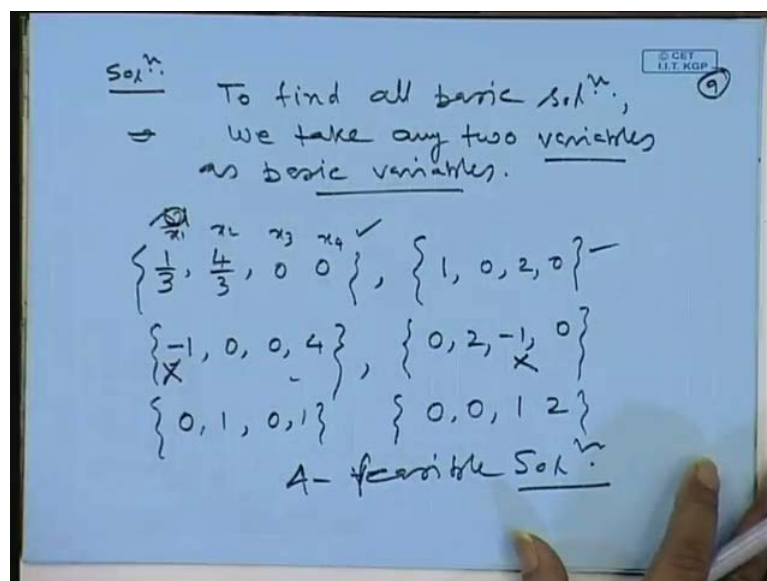 © CET
I.I.T. KGP
9
Solⁿ.
To find all basic solⁿ.,
⇒ We take any two variables
as basic variables.
x₁ x₂ x₃ x₄ ✓
{1/3, 4/3, 0 0}, {1, 0, 2, 0} –
{-1, 0, 0, 4}, {0, 2, -1, 0}
X X
{0, 1, 0, 1} {0, 0, 1 2}
4- feasible Solⁿ.